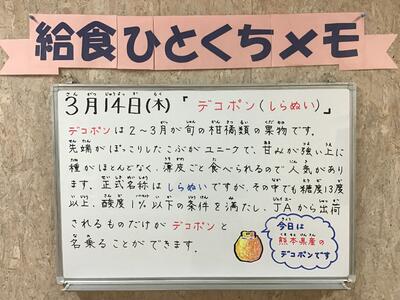 給食ひとくちメモ
3月14日(木)「デコポン(しらぬい)」
デコポンは2~3月が旬の柑橘類の果物です。
先端がぽっこりしたこぶがユニークで、甘みが強い上に
種がほとんどなく、薄皮ごと食べられるので人気があり
ます。正式名称はしらぬいですが、その中でも糖度13度
以上、酸度1%以下の条件を満たし、JAから出荷
されるものだけがデコポンと
名乗ることができます。
今日は
熊本県産の
デコポンです